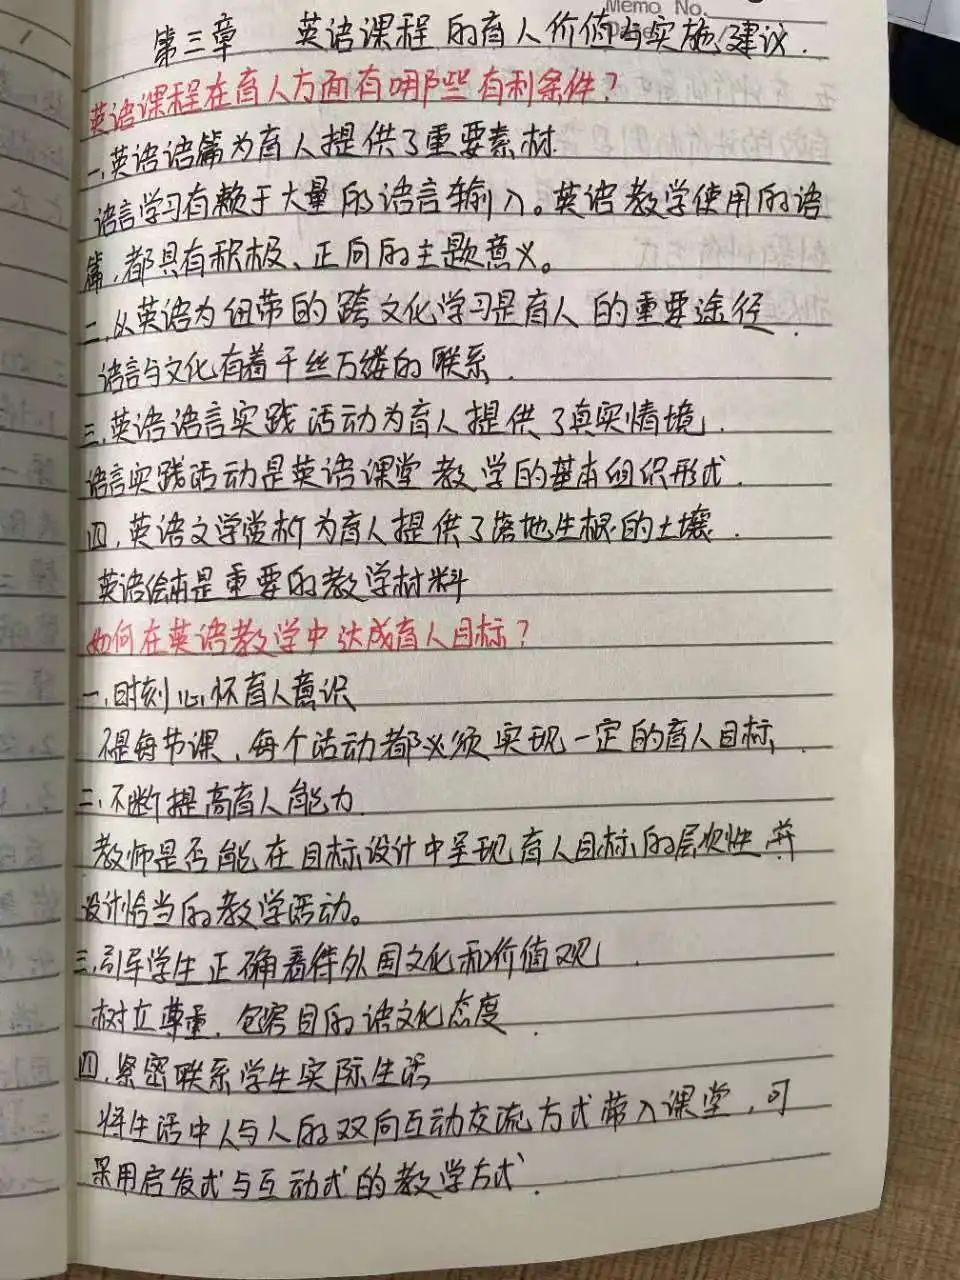 Memo No.
第三章 英语课程的育人价值与实施建议.
英语课程在育人方面有哪些有利条件?
一.英语语篇为育人提供了重要素材.
语言学习有赖于大量的语言输入。英语教学使用的语
篇,都具有积极、正向的主题意义。
二.从英语为纽带的跨文化学习是育人的重要途径.
语言与文化有着千丝万缕的联系.
三.英语语言实践活动为育人提供了真实情境.
语言实践活动是英语课堂教学的基本组织形式.
四.英语文学赏析为育人提供了落地生根的土壤.
英语绘本是重要的教学材料
如何在英语教学中达成育人目标?
一.时刻心怀育人意识
不是每节课、每个活动都必须实现一定的育人目标.
二.不断提高育人能力.
教师是否能在目标设计中呈现育人目标的层次性并
设计恰当的教学活动。
三.引导学生正确看待外国文化和价值观.
树立尊重、包容目的语文化态度.
四.紧密联系学生实际生活
将生活中人与人的双向互动交流方式带入课堂,可
采用启发式与互动式的教学方式.